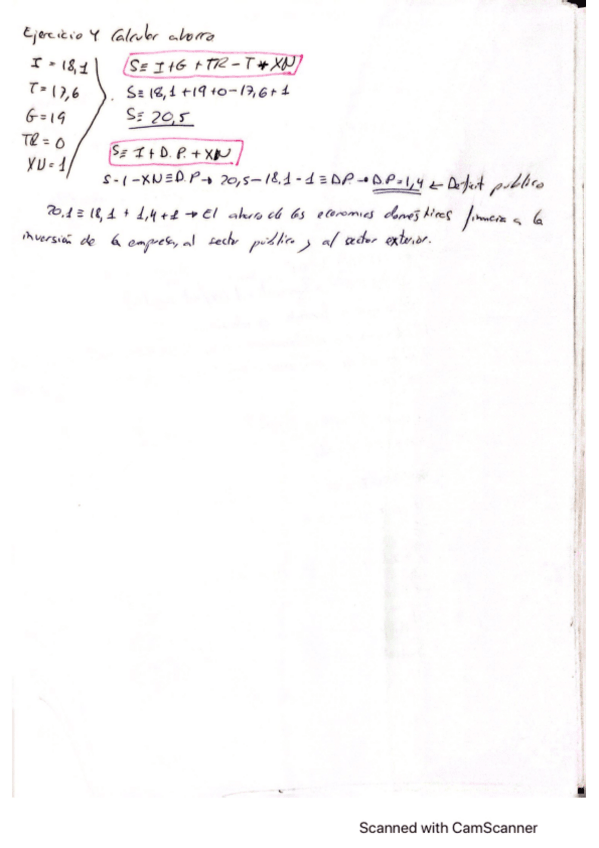 Ejercicio 4 Calcular ahorro
I = 18,1
T = 17,6
G = 19
TR = 0
XN = 1
S ≡ I + G + TR - T + XN
S ≡ 18,1 + 19 + 0 - 17,6 + 1
S ≡ 20,5
S ≡ I + D.P. + XN
S - I - XN ≡ D.P → 20,5 - 18,1 - 1 ≡ DP. → D.P = 1,4 ← Deficit publico
20,1 ≡ 18,1 + 1,4 + 1 → El ahorro de las economias domesticas financia a la
inversión de la empresa, al sector público y al sector exterior.
Scanned with CamScanner